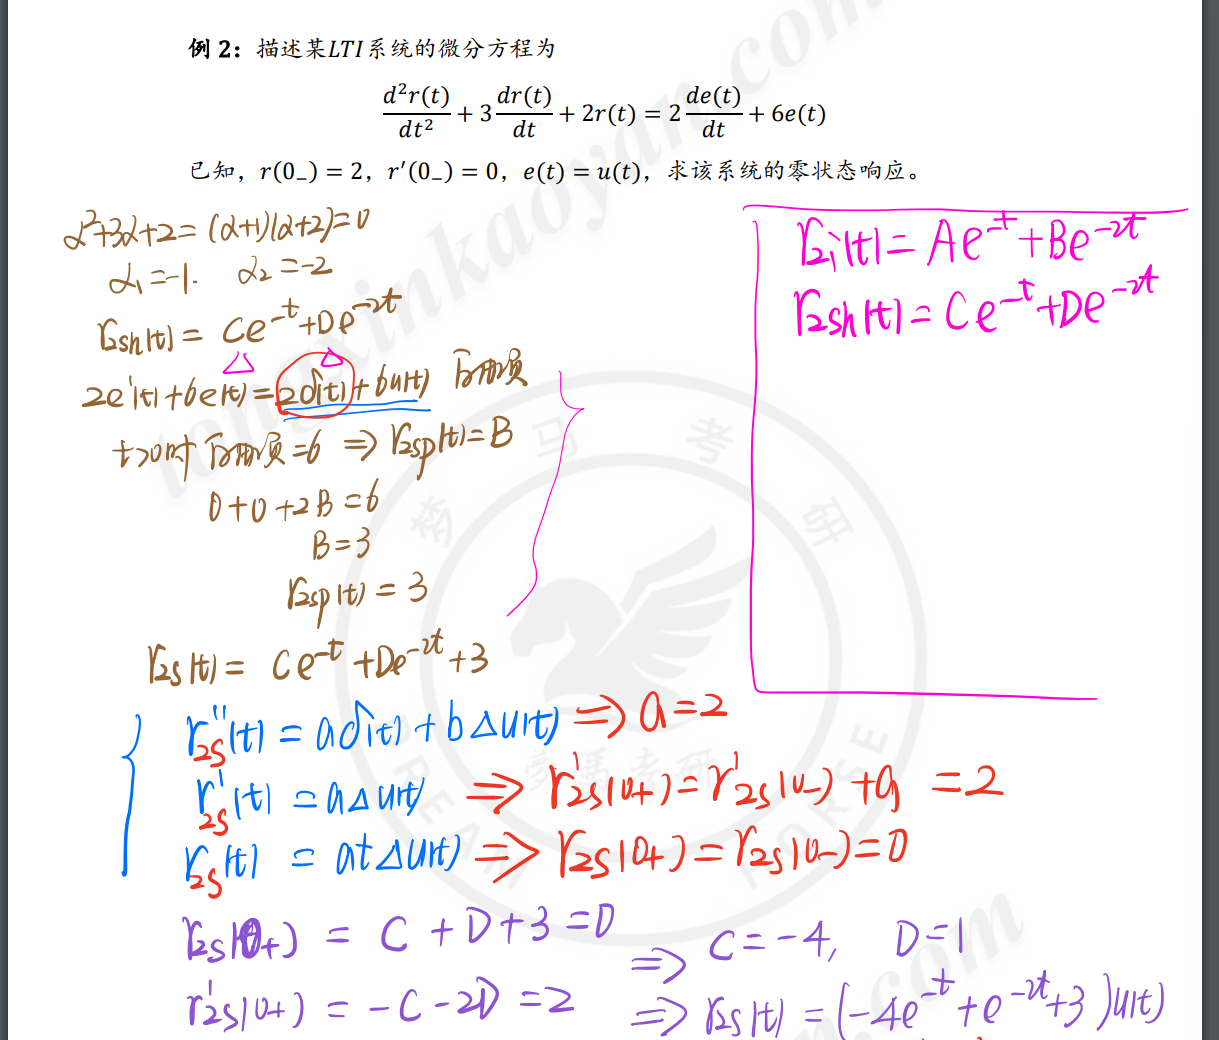 例 2：描述某LTI系统的微分方程为
d²r(t)/dt² + 3 dr(t)/dt + 2r(t) = 2 de(t)/dt + 6e(t)
已知，r(0₋) = 2，r′(0₋) = 0，e(t) = u(t)，求该系统的零状态响应。
α²+3α+2=(α+1)(α+2)=0
α₁=-1. α₂=-2
rzsh(t) = Ce^-t+De^-2t
2e'(t)+6e(t)=2δ(t)+6u(t) 自由项
t>0时 自由项=6 ⇒ rzsp(t)=B
0+0+2B=6
B=3
rzsp(t) = 3
rzs(t) = Ce^-t+De^-2t+3
rzi(t) = Ae^-t+Be^-2t
rzsh(t) = Ce^-t+De^-2t
rzs''(t) = aδ(t)+bΔu(t) ⇒ a=2
rzs'(t) = aΔu(t) ⇒ r'zs(0+)=r'zs(0-)+a =2
rzs(t) = atΔu(t) ⇒ rzs(0+)=rzs(0-)=0
rzs(0+) = C+D+3=0
r'zs(0+) = -C-2D=2
⇒ C=-4, D=1
⇒ rzs(t) = (-4e^-t+e^-2t+3)u(t)
tongxinkaoyan.com
梦马考研
DREAM HORSE